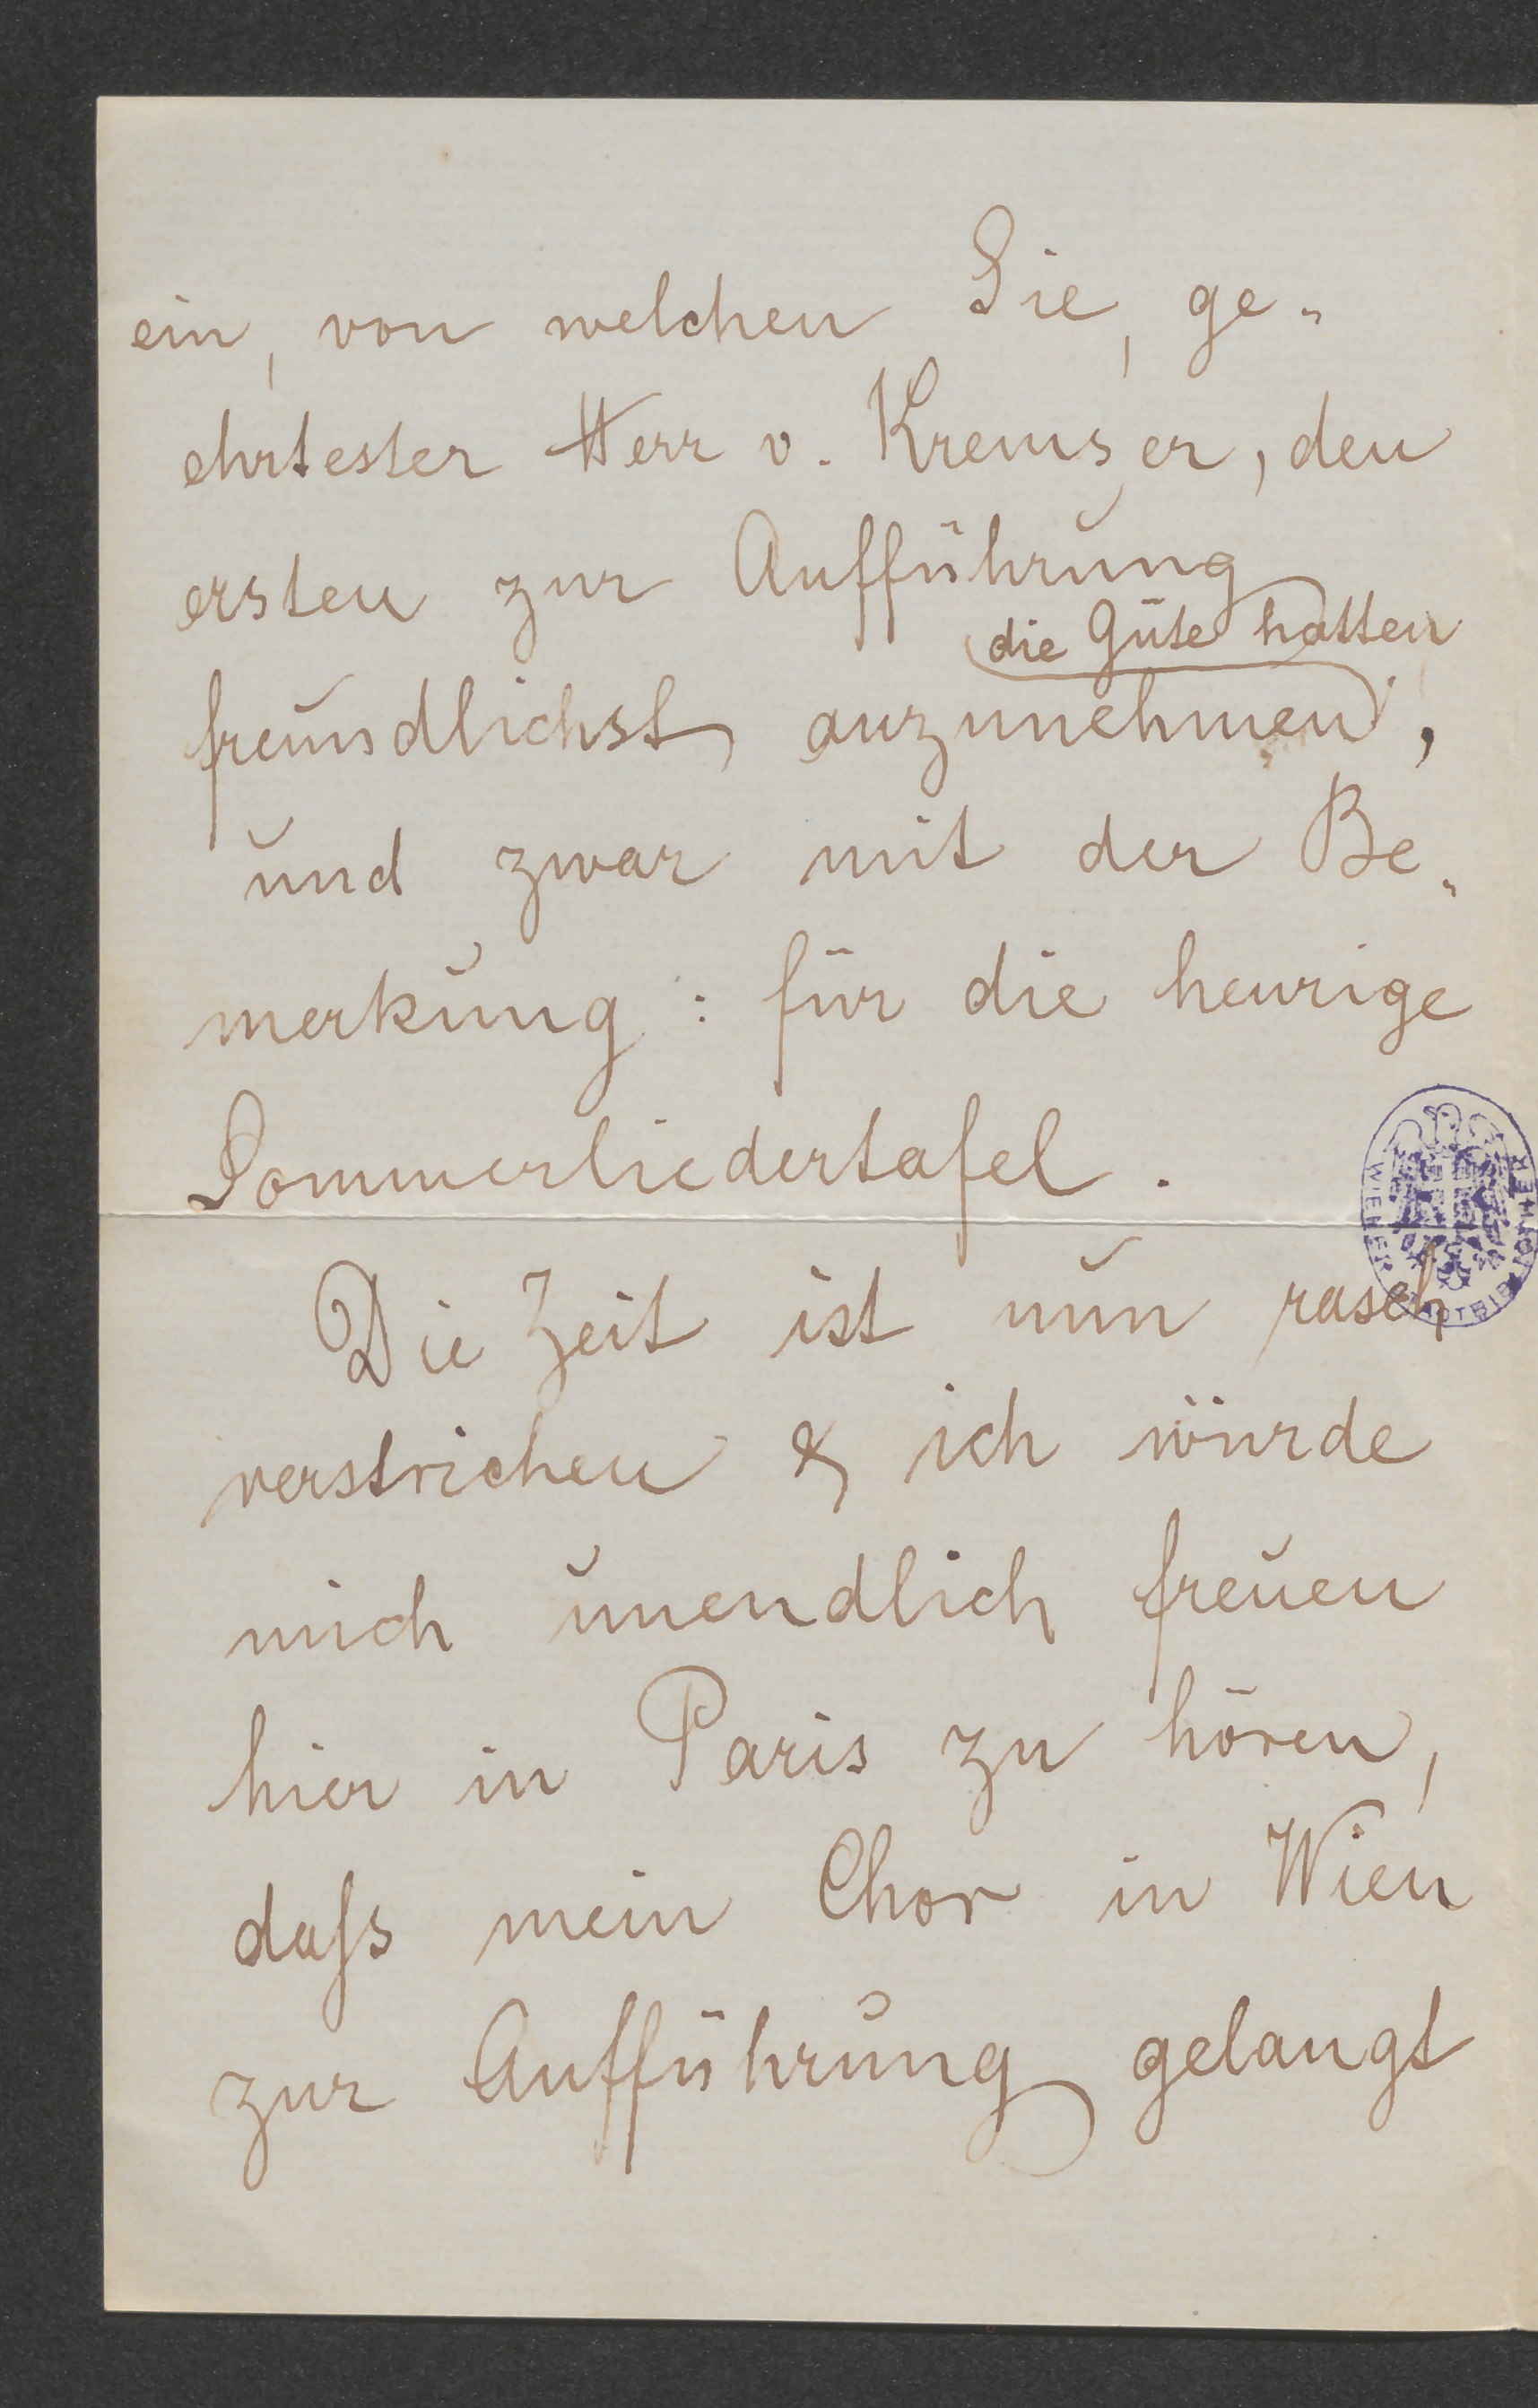 ein, von welchen Sie, ge„
ehrtester Herr v. Kremser, den
ersten zur Aufführung
die Güte hatten
freundlichst anzunehmen,
und zwar mit der Be„
merkung: für die heurige
Sommerliedertafel.
Die Zeit ist nun rasch
verstrichen & ich würde
mich unendlich freuen
hier in Paris zu hören,
daſs mein Chor in Wien
zur Aufführung gelangt
WIENER STADTBIBLIOTHEK